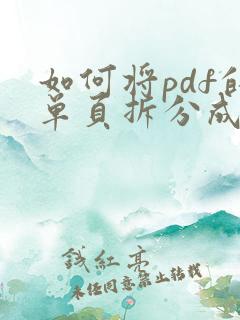 如何将pdf的
单页拆分成
钱红亮
未经同意禁止转载